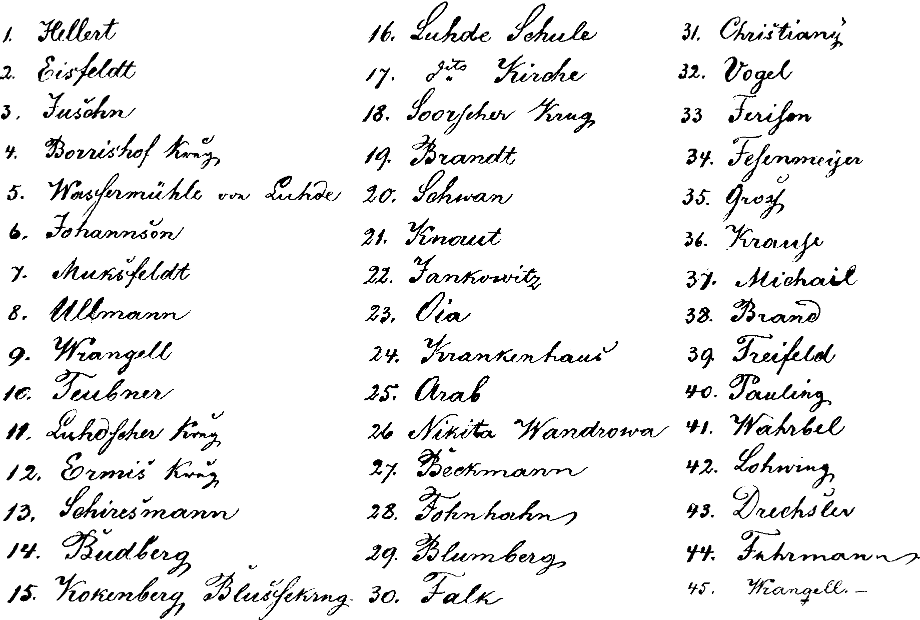 1. Hellert
2. Eisfeldt
3. Juschn
4. Borrishof Krug
5. Wassermühle von Luhde
6. Johannson
7. Muksfeldt
8. Ullmann
9. Wrangell
10. Teubner
11. Luhdscher Krug
12. Ermis Krug
13. Schiresmann
14. Budberg
15. Kokenberg Blussekrug
16. Luhde Schule
17. dito Kirche
18. Soorscher Krug
19. Brandt
20. Schwan
21. Knaut
22. Jankowitz
23. Oia
24. Krankenhaus
25. Arab
26 Nikita Wandrowa
27. Beckmann
28. Fohnhahn
29. Blumberg
30. Falk
31. Christiany
32. Vogel
33 Ferison
34. Fesenmeijer
35. Gross
36. Krause
37. Michail
38. Brand
39. Freifeld
40. Pauling
41. Wahrbel
42. Lohwing
43. Drechsler
44. Fuhrmann
45. Wrangell.